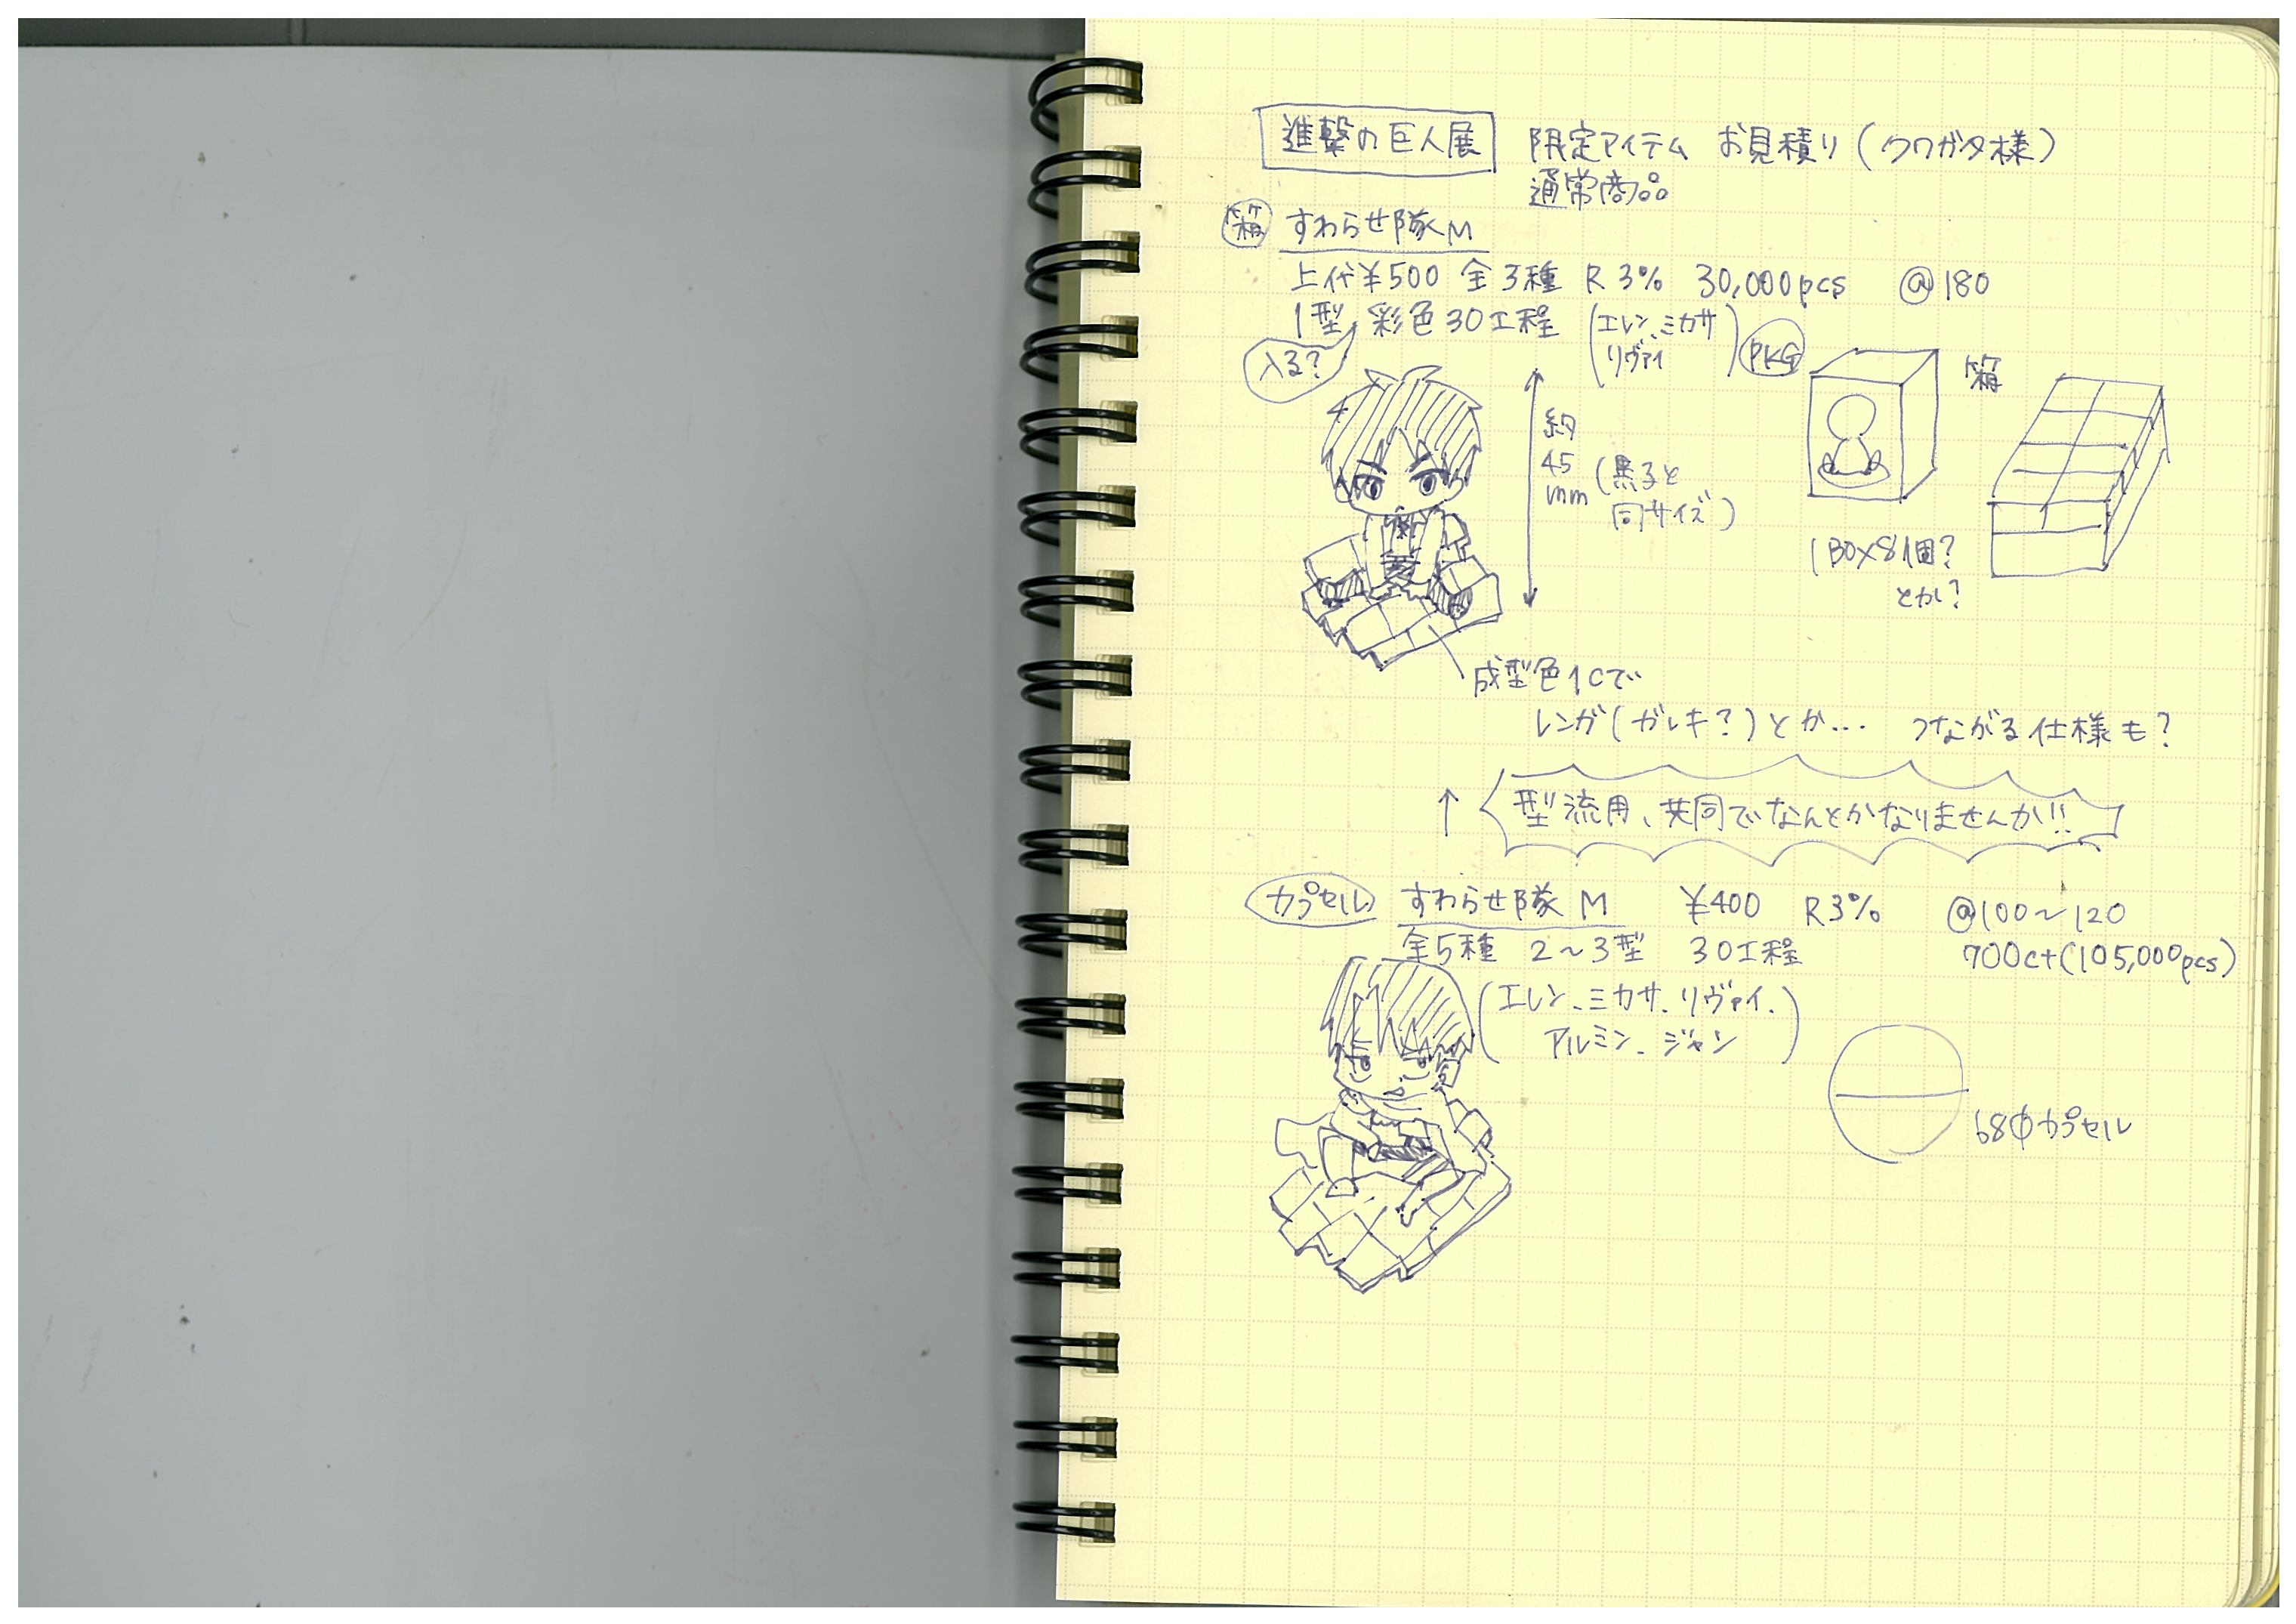 進撃の巨人展 限定アイテム お見積り(クワガタ様)
通常商品
箱 すわらせ隊M
上代¥500 全3種 R3% 30,000pcs @180
1型 彩色30工程 (エレン、ミカサ
リヴァイ)
入る?
PKG
箱
約
45
mm
(黒子と
同サイズ)
1BOX8個?
とか?
成型色1Cで
レンガ(ガレキ?)とか… つながる仕様も?
↑ 型流用、共同でなんとかなりませんか!!
カプセル すわらせ隊M ¥400 R3% @100~120
全5種 2~3型 30工程 700ct(105,000pcs)
(エレン、ミカサ、リヴァイ、
アルミン、ジャン)
68φカプセル